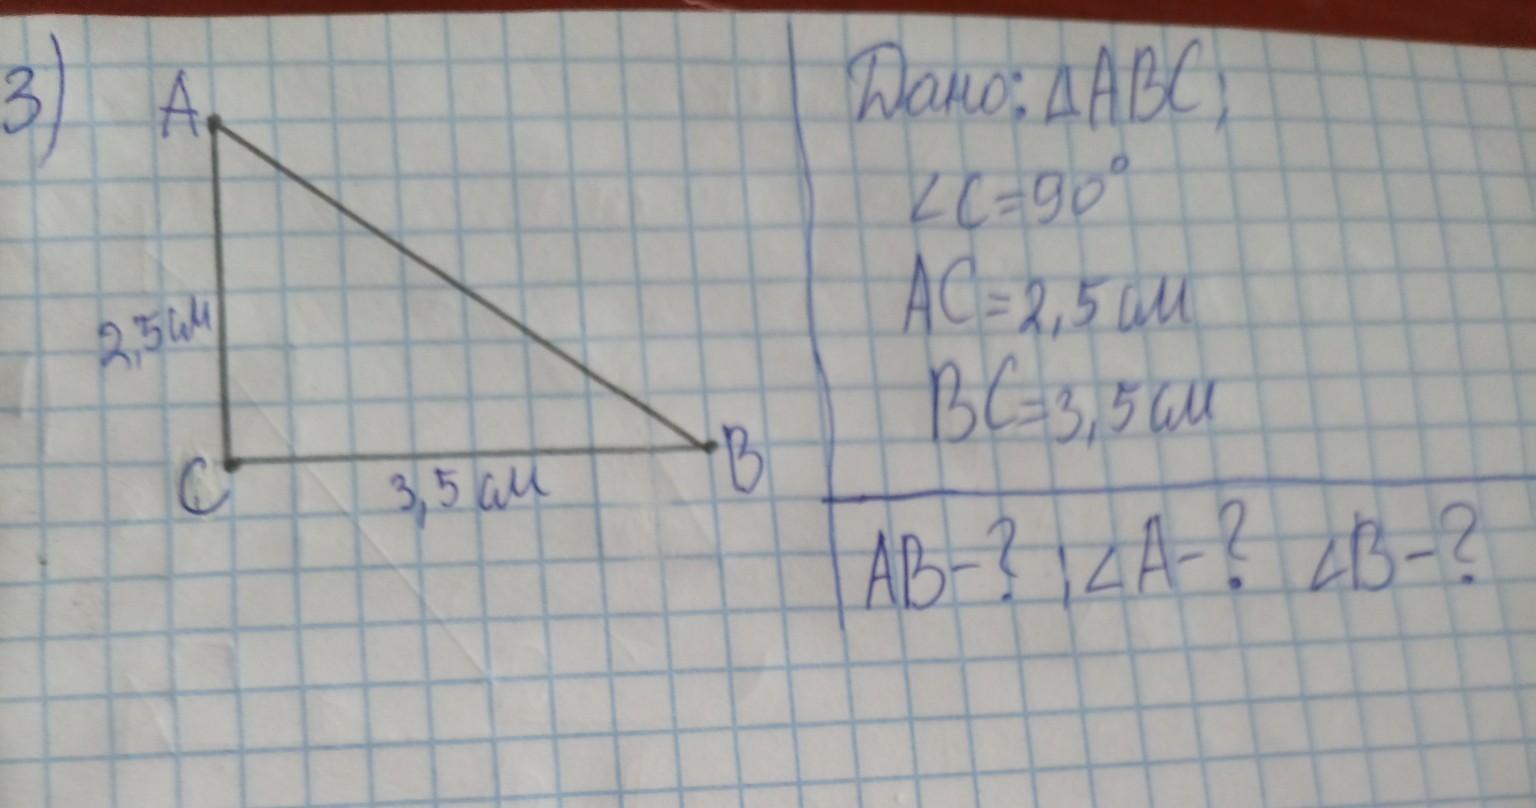 3)
A
2,5см
C
3,5 см
B
Дано: ΔABC;
∠C=90°
AC=2,5 см
BC=3,5 см
AB-? ; ∠A-? ∠B-?